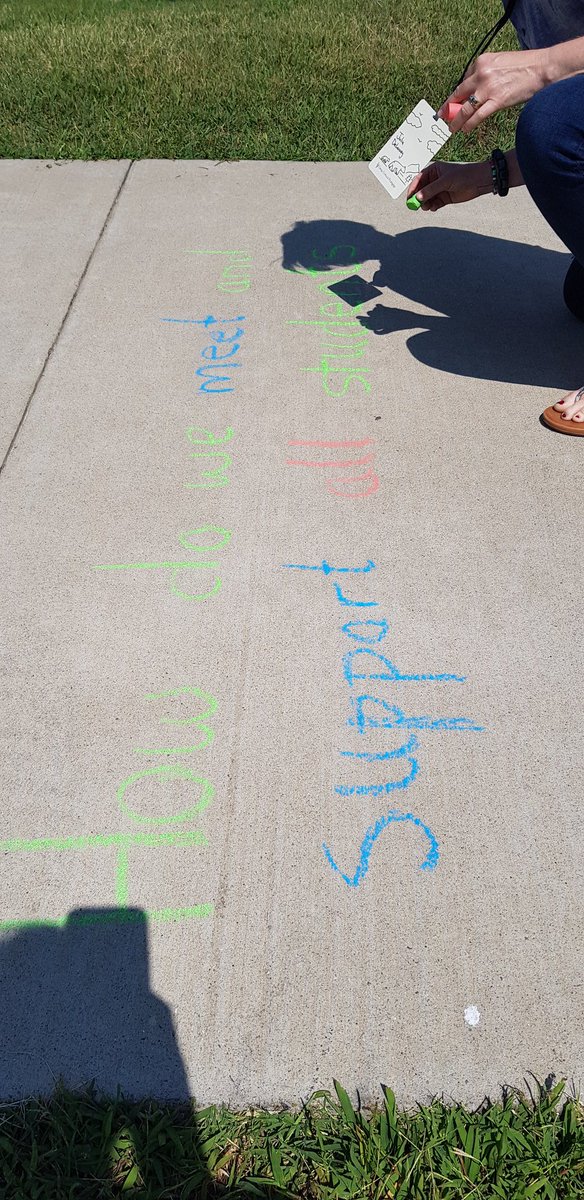 How do we meet and
support all students